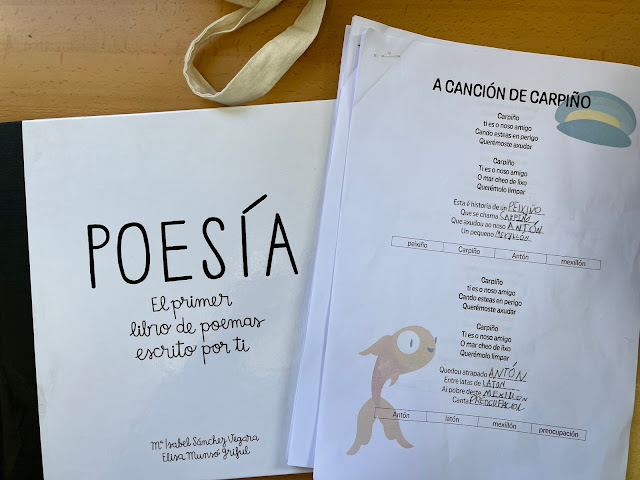 POESÍA
El primer
libro de poemas
escrito por ti
Mª Isabel Sánchez Vegara
Elisa Munsó Griful
A CANCIÓN DE CARPIÑO
Carpiño
ti es o noso amigo
Cando esteas en perigo
Querémoste axudar
Carpiño
Ti es o noso amigo
O mar cheo de lixo
Querémolo limpar
Esta é historia de un PEIXIÑO
Que se chama CARPIÑO
Que axudou ao noso ANTÓN
Un pequeno MEXILLÓN
peixiño Carpiño Antón mexillón
Carpiño
ti es o noso amigo
Cando esteas en perigo
Querémoste axudar
Carpiño
Ti es o noso amigo
O mar cheo de lixo
Querémolo limpar
Quedou atrapado ANTÓN
Entre latas de LATÓN
Ai pobre deste MEXILLÓN
Canta PREOCUPACIOL
Antón latón mexillón preocupación